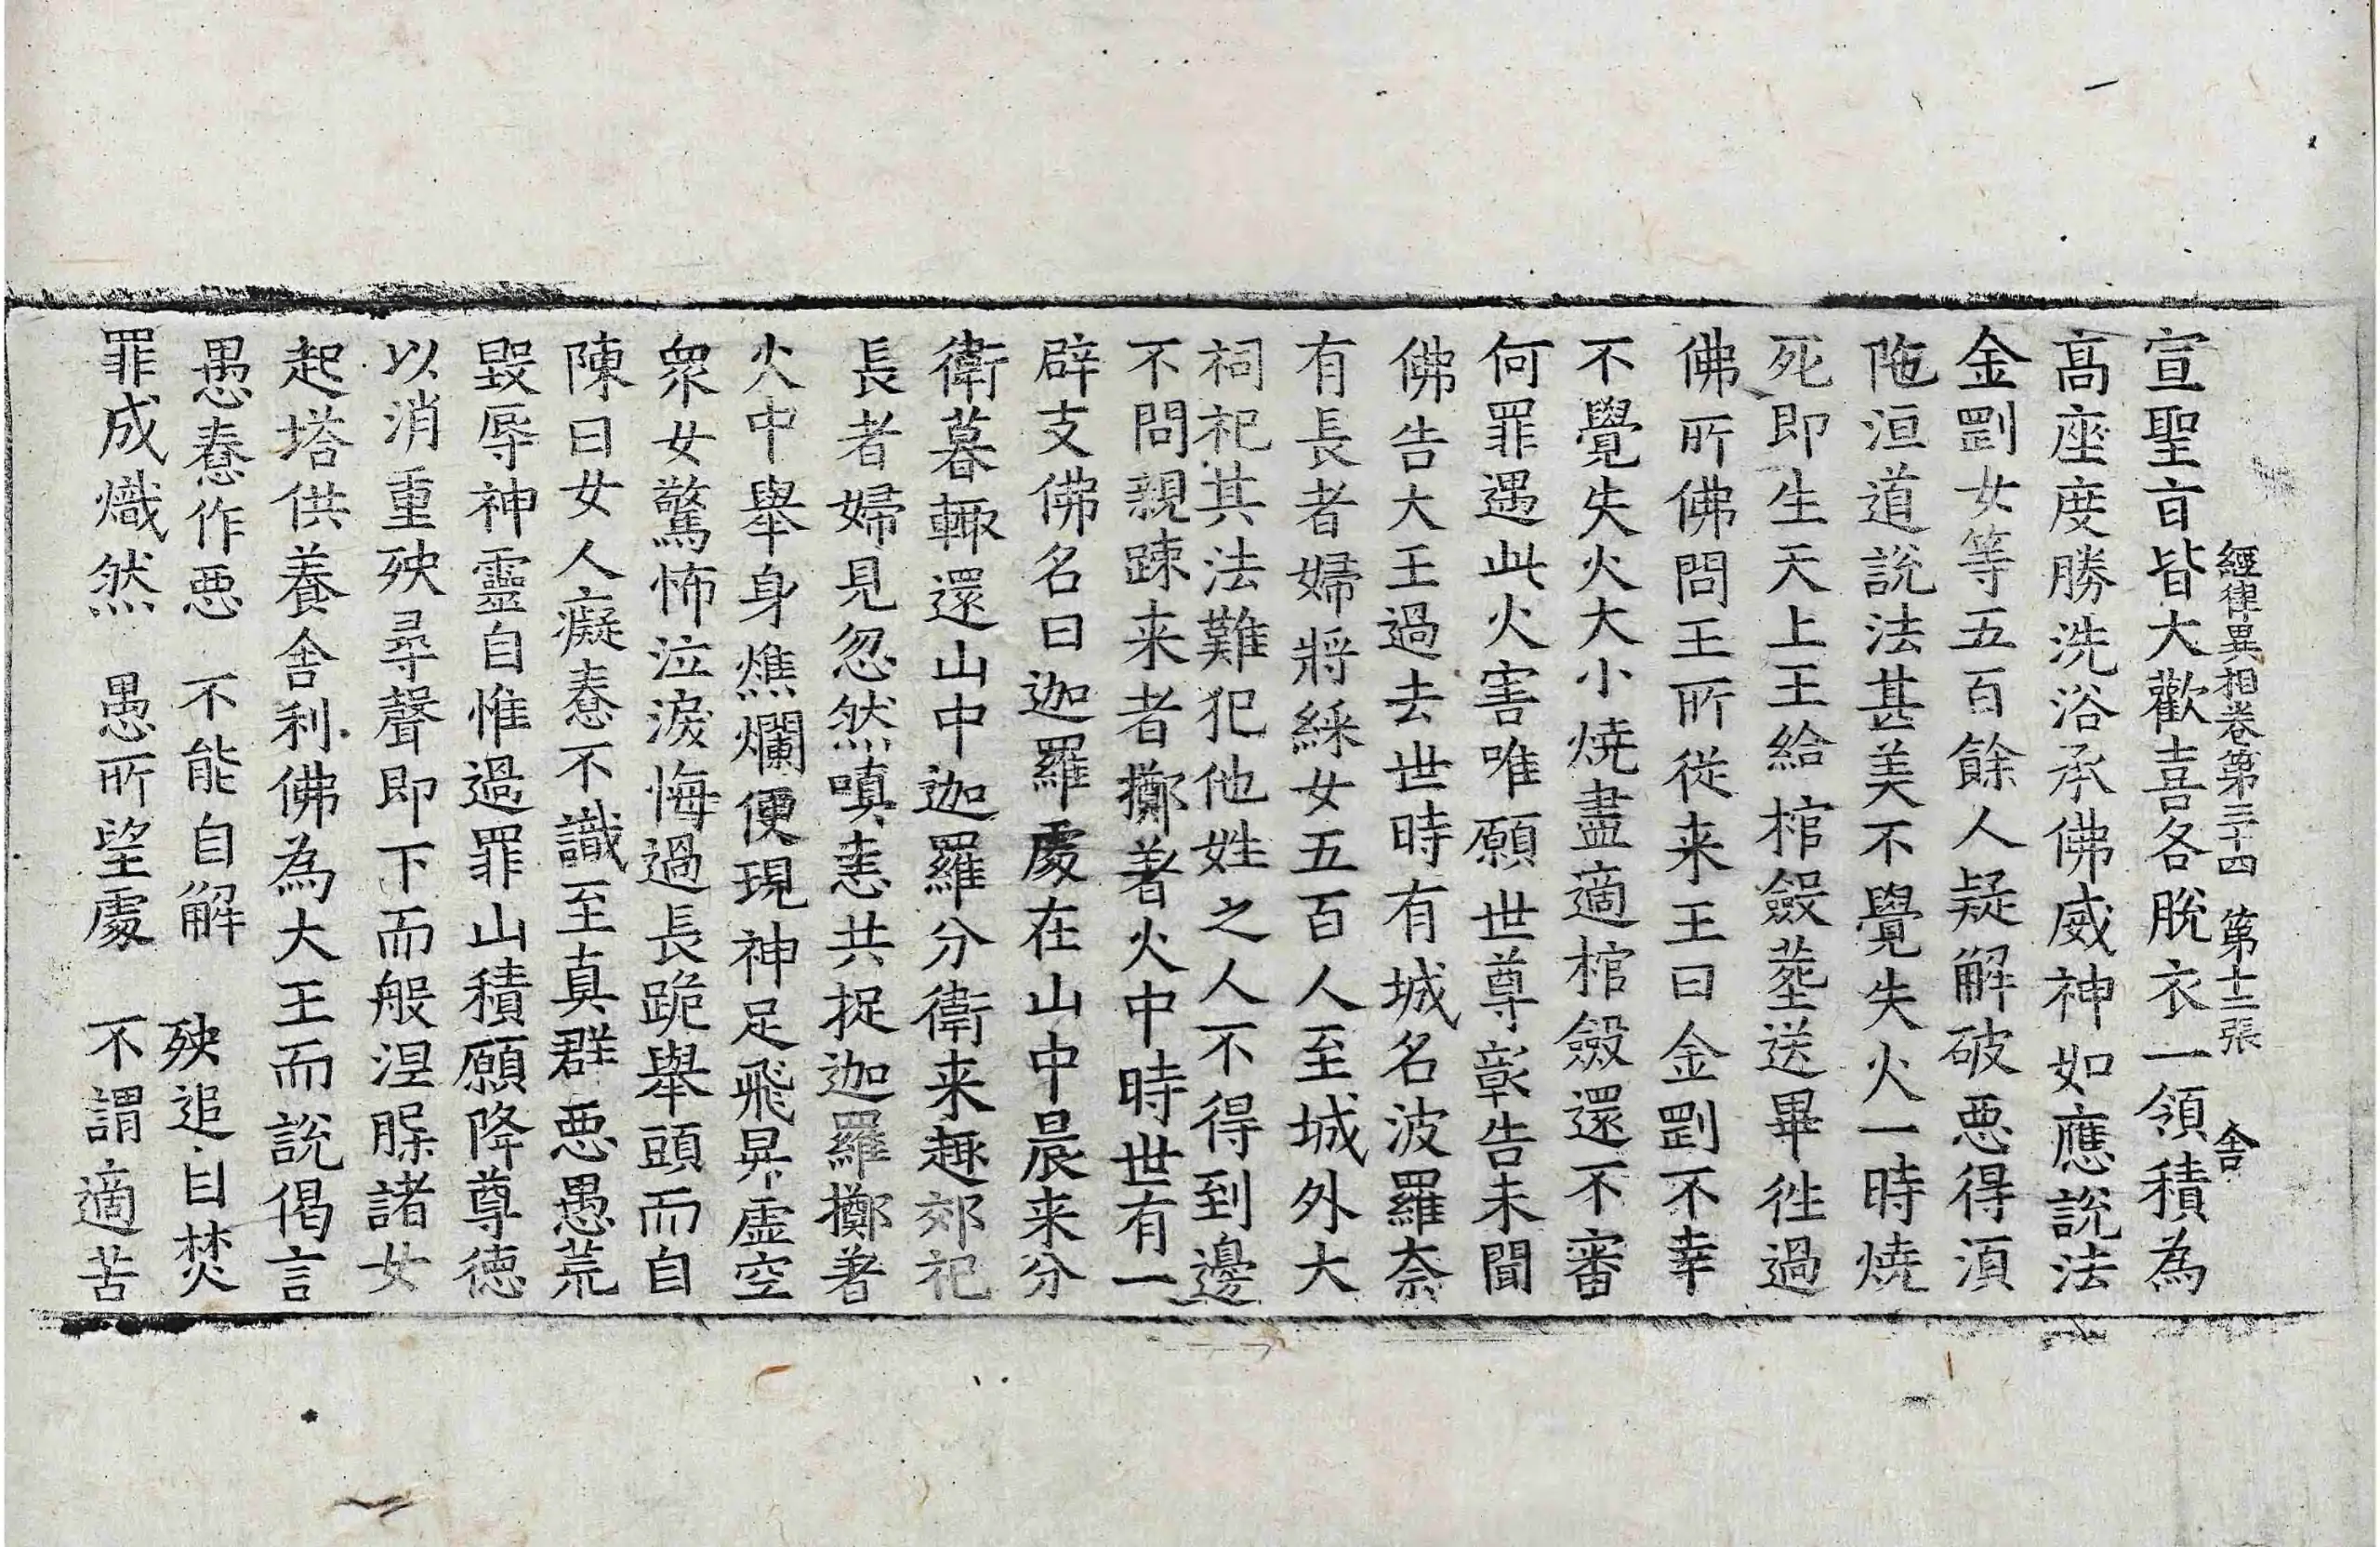 經律異相卷第三十四 第十二張 舎
宣聖㫖皆大歡喜各脫衣一領積為
髙座度勝洗浴承佛威神如應說法
金剛女等五百餘人疑解破惡得湏
陁洹道說法甚美不覺失火一時燒
死即生天上王給棺斂葬送畢往過
佛所佛問王所從来王曰金剛不幸
不覺失火大小燒盡適棺斂還不審
何罪遇此火害唯願世尊彰告未聞
佛告大王過去世時有城名波羅奈
有長者婦將綵女五百人至城外大
祠祀其法難犯他姓之人不得到邊
不問親踈来者擲著火中時世有一
辟支佛名曰迦羅處在山中晨来分
衛暮輙還山中迦羅分衛来趣郊祀
長者婦見忽然嗔恚共捉迦羅擲著
火中舉身燋爛便現神足飛昇虛空
衆女驚怖泣淚悔過長跪舉頭而自
陳曰女人癡惷不識至真群惡愚荒
毀辱神靈自惟過罪山積願降尊德
以消重殃尋聲即下而般涅槃諸女
起塔供養舍利佛為大王而說偈言
愚惷作惡 不能自解 殃追自焚
罪成熾然 愚所望處 不謂適苦